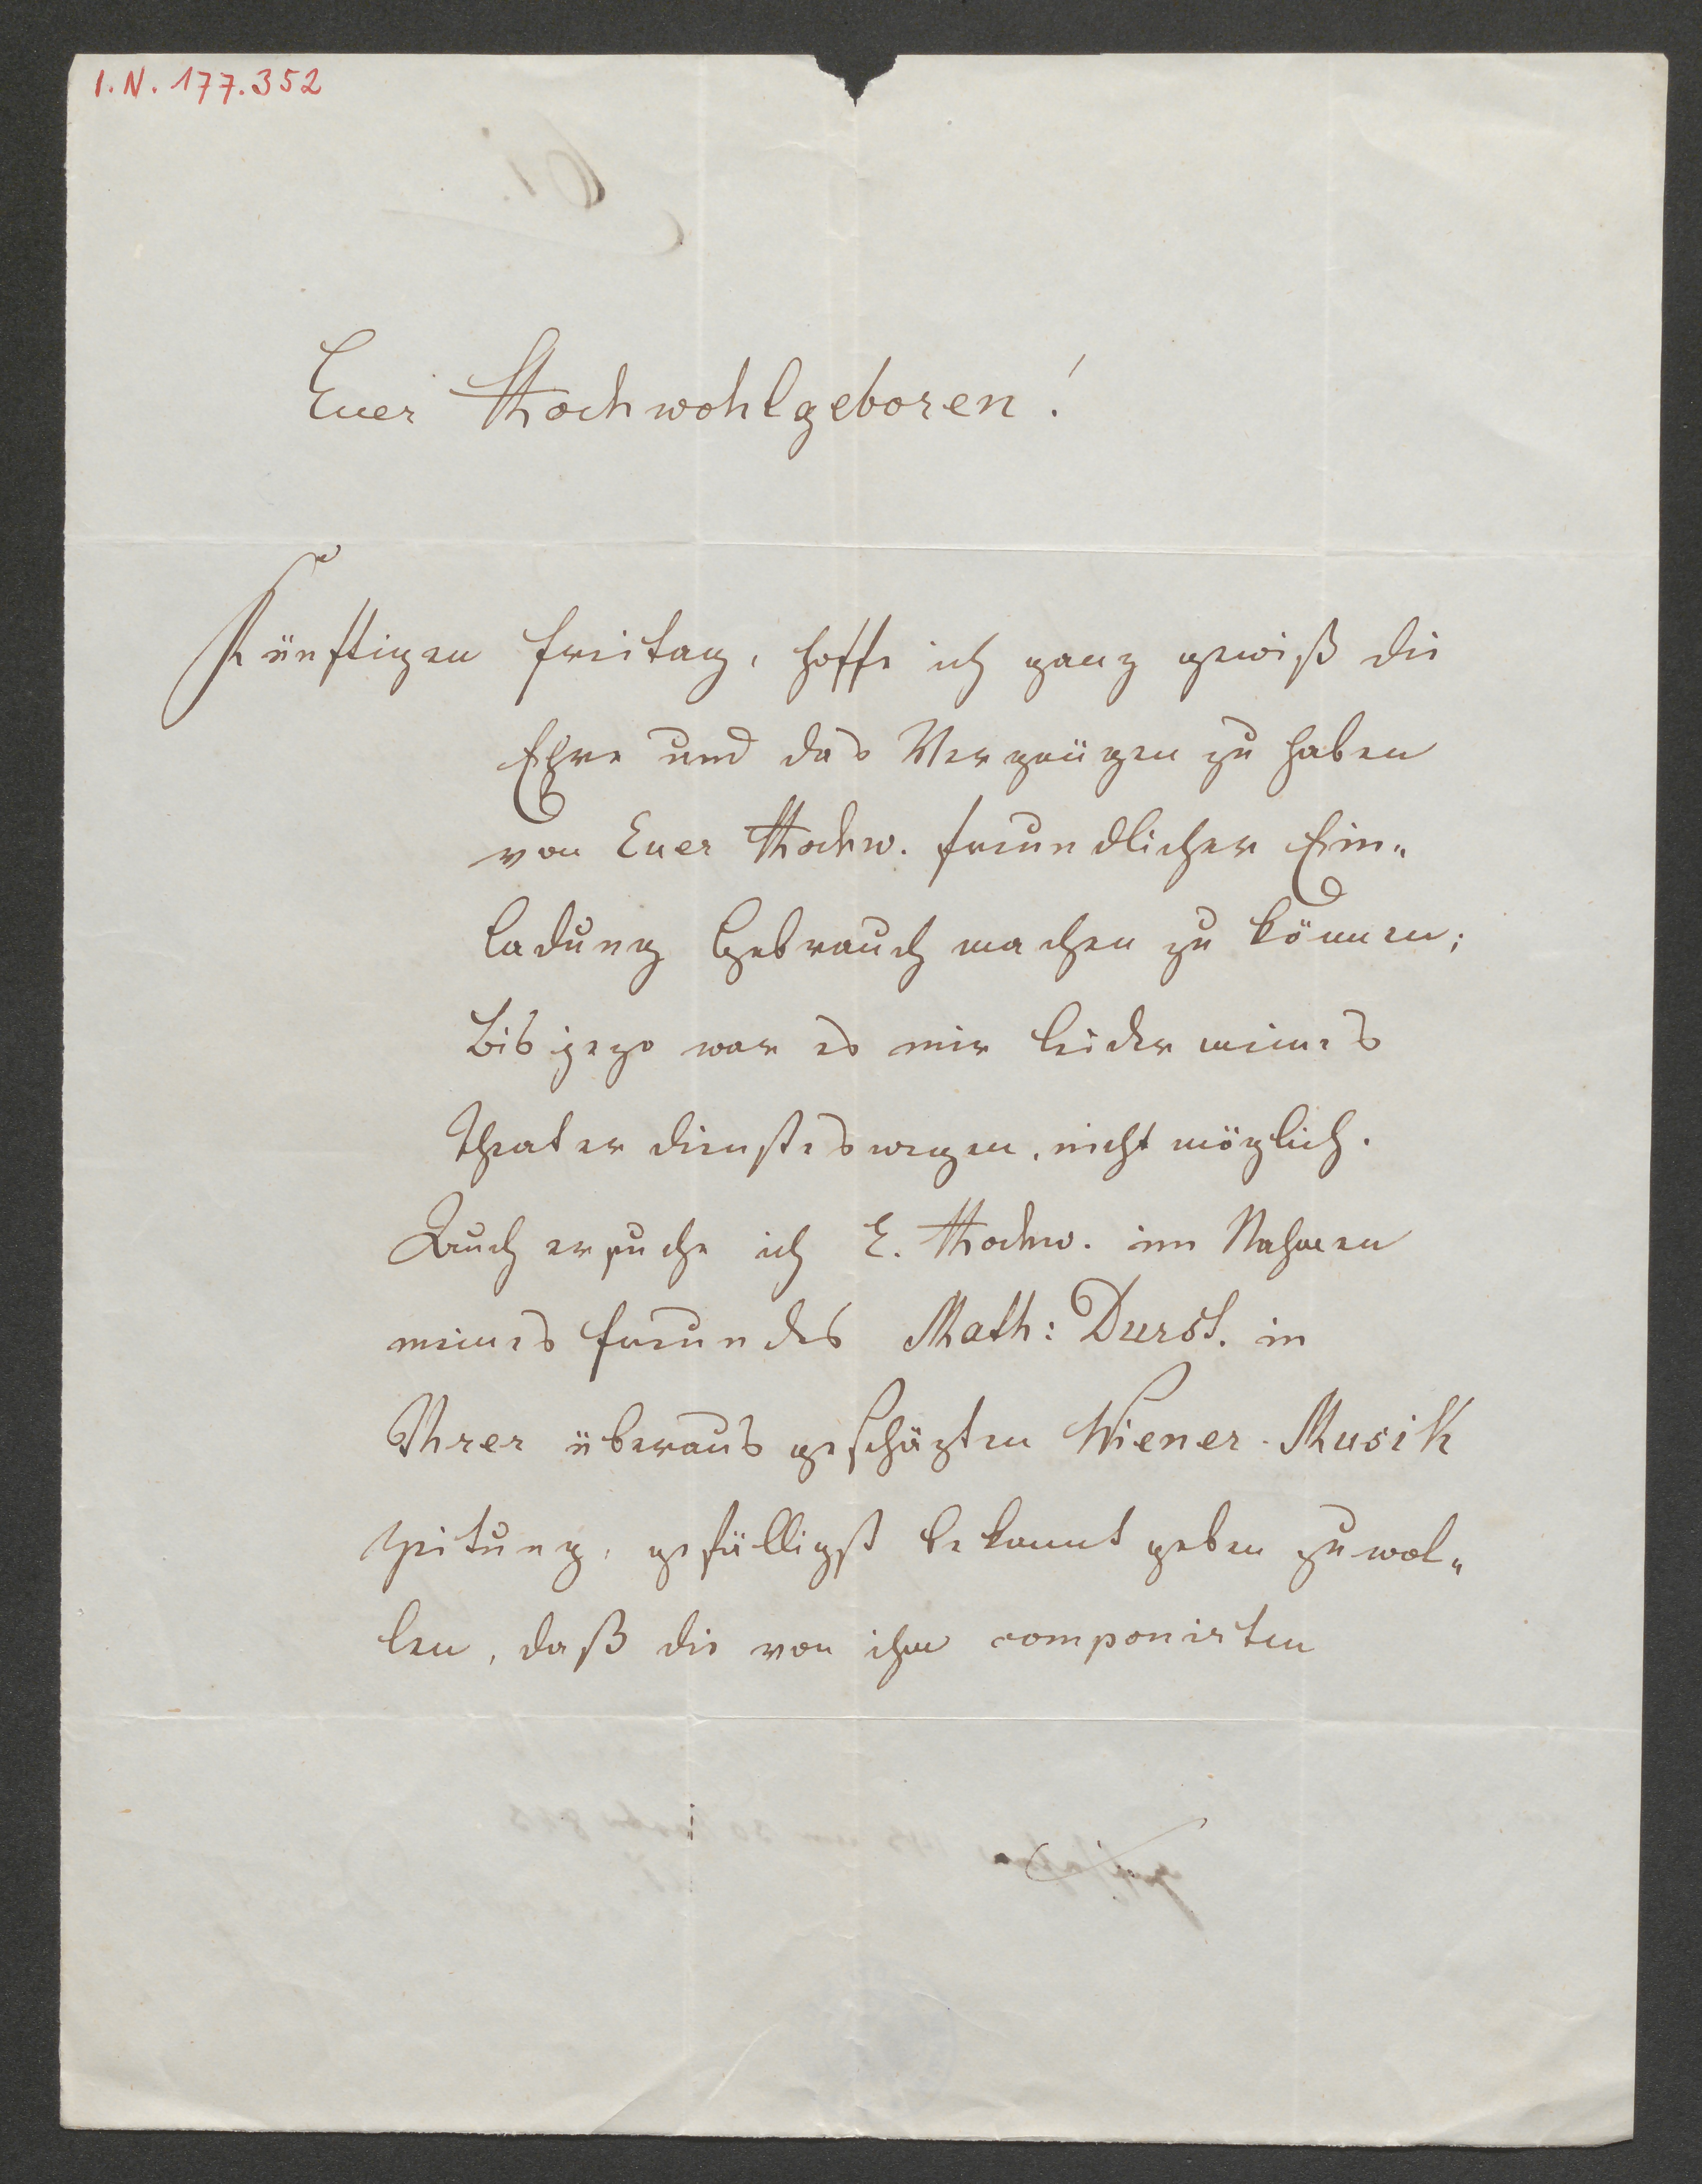 I.N. 177.352
Euer Hochwohlgeboren!
Künftigen Freitag, hoffe ich ganz gewiß die
Ehre und das Vergnügen zu haben
von Euer Hochw. freundlicher Ein„
ladung Gebrauch machen zu können;
bis jezo war es mir leider meines
Theater dienstes wegen, nicht möglich.
Auch ersuche ich E. Hochw. im Nahmen
meines Freundes Math: Durst. in
Ihrer überaus geschäzten Wiener-Musik
zeitung, gefälligst bekannt geben zu wol„
len, daß die von ihm componirten